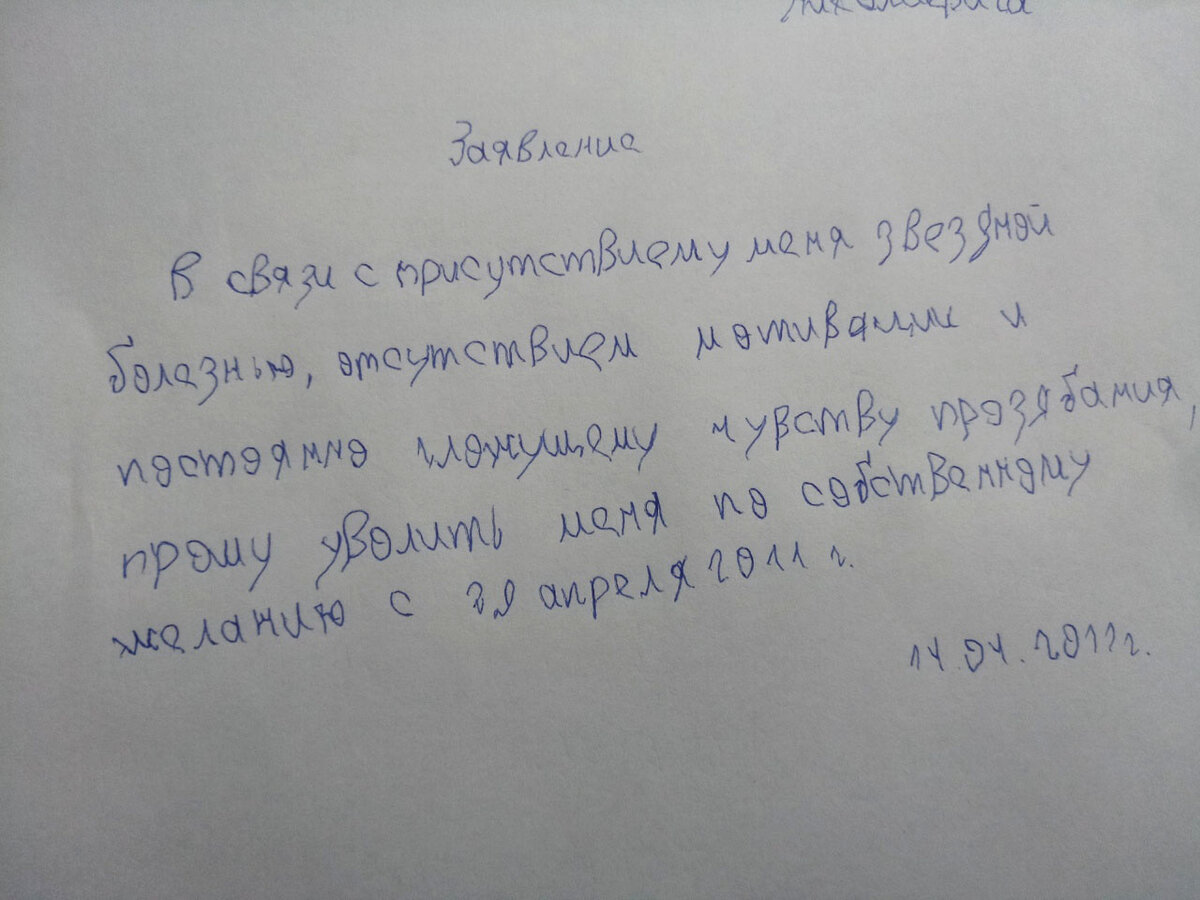 Николаевича
Заявление
В связи с присутствием у меня звездной
болезнью, отсутствием мотивации и
постоянно гложущему чувству прозябания,
прошу уволить меня по собственному
желанию с 29 апреля 2011 г.
14.04.2011 г.